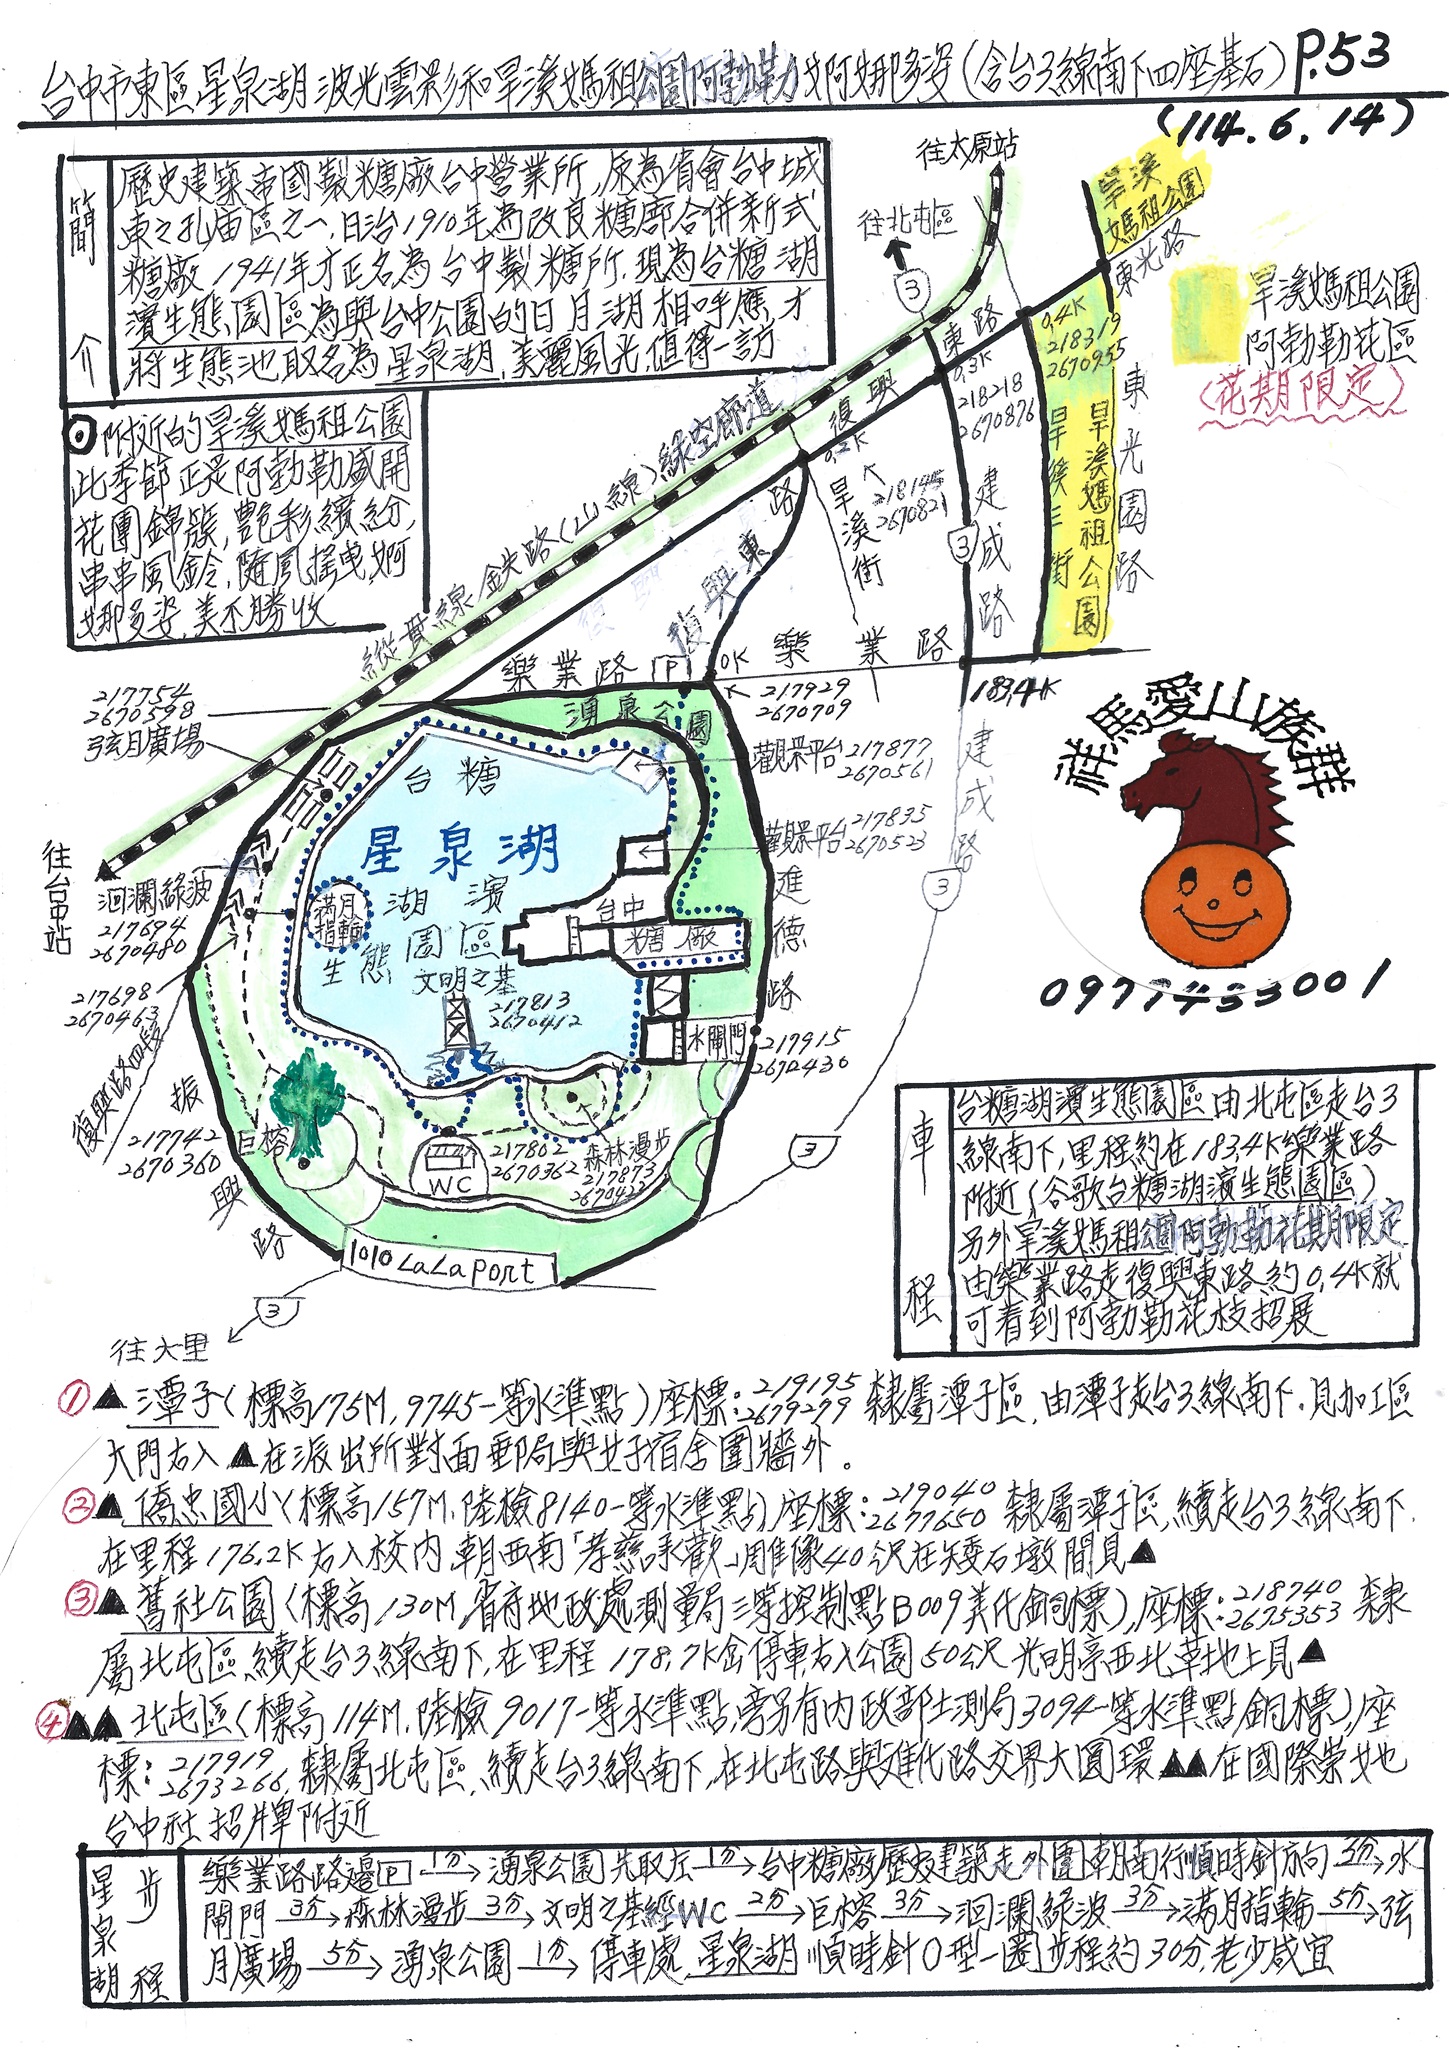 台中市東區星泉湖波光雲影和旱溪媽祖公園阿勃勒婀娜多姿(含台3線南下四座基石) P.53
(114.6.14)
簡介
歷史建築帝國製糖廠台中營業所,原為省會台中城
東之孔庙區之一,日治1910年為改良糖廍合併新式
糖廠1941年才正名為台中製糖所.現為台糖湖
濱生態園區為與台中公園的日月湖相呼應,才
將生態池取名為星泉湖,美麗風光,值得一訪
◎附近的旱溪媽祖公園
此季節正是阿勃勒盛開
花團錦簇,艷彩繽紛,
串串風鈴,隨風搖曳,婀
娜多姿,美不勝收
往太原站
往北屯區
3
旱溪
媽祖公園
東光路
旱溪媽祖公園
阿勃勒花區
(花期限定)
0.4K
218319
2670955
東路
0.3K
218218
2670876
復興
0.2K
218145
2670821
旱溪街
建成路
3
旱溪三街
旱溪媽祖公園
東光園路
縱貫線鉄路(山線)綠空廊道
復興東路
樂業路
P
0K
樂業路
183.4K
217929
2670709
217754
2670598
弦月廣場
湧泉公園
觀景平台 217877
2670561
觀景平台 217835
2670523
台糖
星泉湖
湖濱
生態園區
滿月
指輪
台中
糖廠
文明之基
217813
2670412
水閘門
217915
2670430
進德路
建成路
3
往台中站
洄瀾綠波
217694
2670480
217698
2670463
復興路四段
振興路
217742
2670360
巨榕
WC
217802
2670362
森林漫步
217873
2670422
3
1010 LaLaport
3
往大里
祥馬愛山族群
0977433001
車程
台糖湖濱生態園區由北屯區走台3
線南下,里程約在183.4K樂業路
附近(谷歌台糖湖濱生態園區)
另外旱溪媽祖公園阿勃勒花期限定
由樂業路走復興東路約0.4K就
可看到阿勃勒花枝招展
①▲潭子(標高175M,9745一等水準點)座標:219195 2679279 隸屬潭子區,由潭子走台3線南下.見加工區
大門右入▲在派出所對面郵局與女子宿舍圍牆外。
②▲僑忠國小(標高157M.陸檢8140一等水準點),座標:219040 2677650 隸屬潭子區,續走台3線南下.
在里程176.2K右入校內,朝西南「孝慈承歡」雕像40公尺在矮石墩間見▲
③▲舊社公園(標高130M,省府地政處測量局三等控制點B009美化銅標),座標:218740 2675353 隸
屬北屯區,續走台3線南下,在里程178.7K岔停車,右入公園50公尺光明亭西北草地上見▲
④▲▲北屯區(標高114M.陸檢9017一等水準點,旁另有內政部土測局3094一等水準點銅標),座
標:217919 2673266,隸屬北屯區,續走台3線南下,在北屯路與進化路交界大圓環▲▲在國際崇她
台中社招牌附近
星泉湖步程
樂業路路邊P 1分→湧泉公園先取左 1分→台中糖廠歷史建築走外圍朝南行順時針方向 5分→水
閘門 3分→森林漫步 3分→文明之基經WC 2分→巨榕 3分→洄瀾綠波 3分→滿月指輪 5分→弦
月廣場 5分→湧泉公園 1分→停車處,星泉湖順時針O型一圈步程約30分,老少咸宜